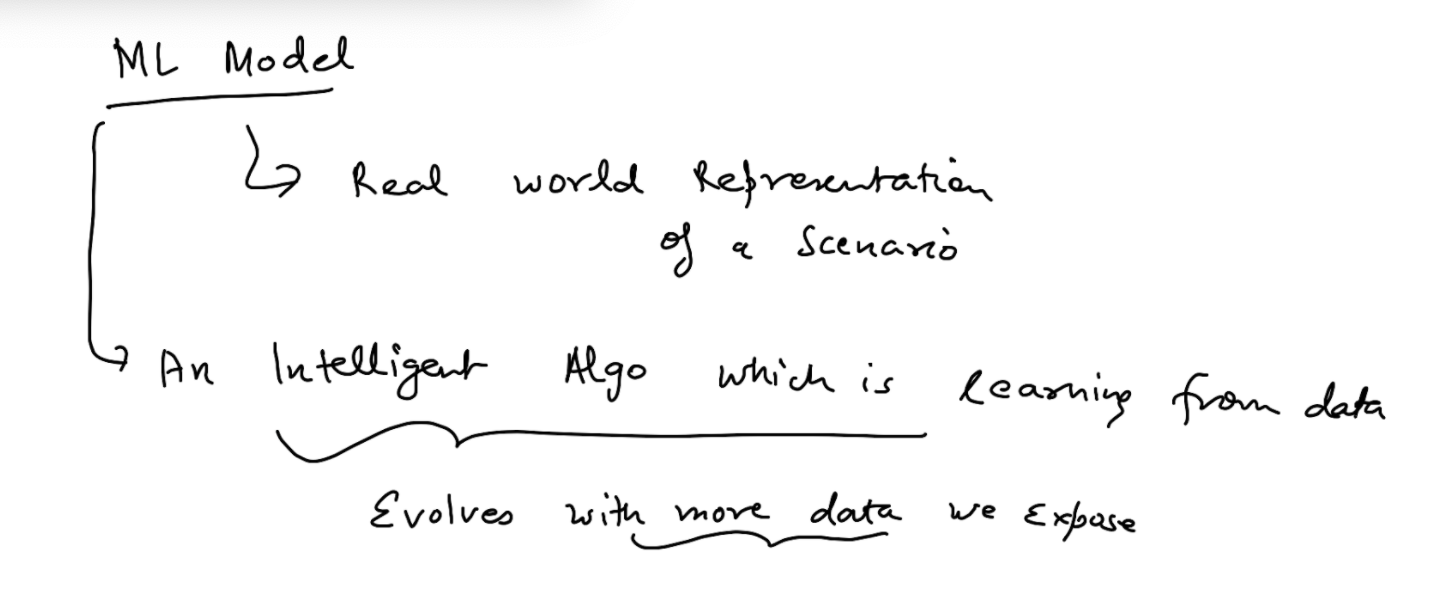 ML Model
Real world Representation
of a Scenario
An Intelligent Algo which is learning from data
Evolves with more data we Expose